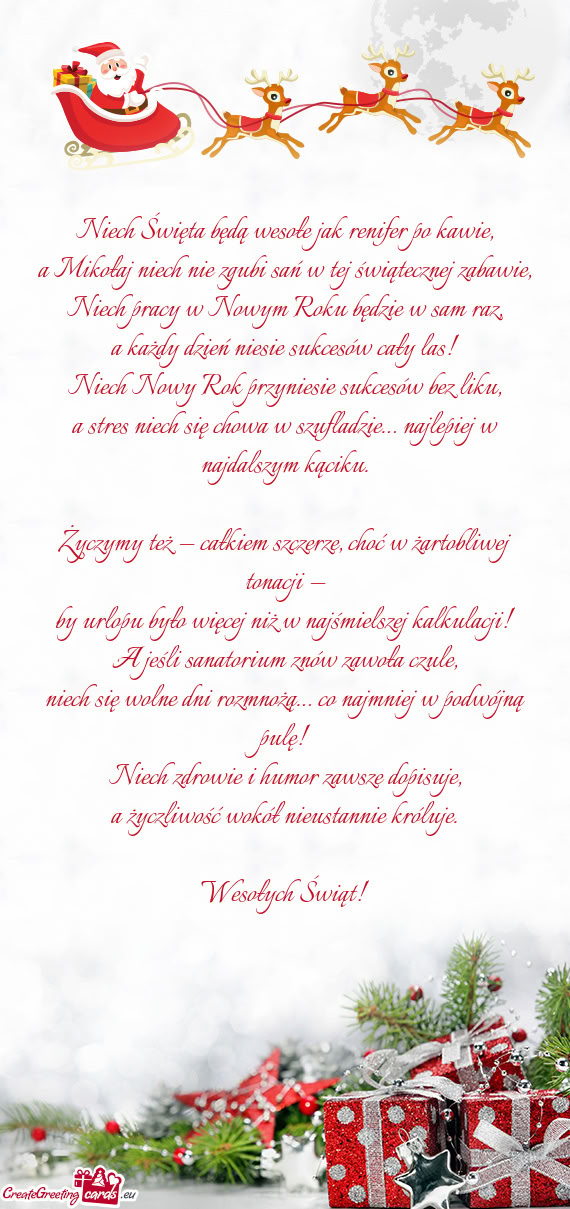 Niech Święta będą wesołe jak renifer po kawie,
a Mikołaj niech nie zgubi sań w tej świątecznej zabawie,
Niech pracy w Nowym Roku będzie w sam raz,
a każdy dzień niesie sukcesów cały las!
Niech Nowy Rok przyniesie sukcesów bez liku,
a stres niech się chowa w szufladzie... najlepiej w
najdalszym kąciku.
Życzymy też – całkiem szczerze, choć w żartobliwej
tonacji –
by urlopu było więcej niż w najśmielszej kalkulacji!
A jeśli sanatorium znów zawoła czule,
niech się wolne dni rozmnożą... co najmniej w podwójną
pulę!
Niech zdrowie i humor zawsze dopisuje,
a życzliwość wokół nieustannie króluje.
Wesołych Świąt!
CreateGreeting cards .eu